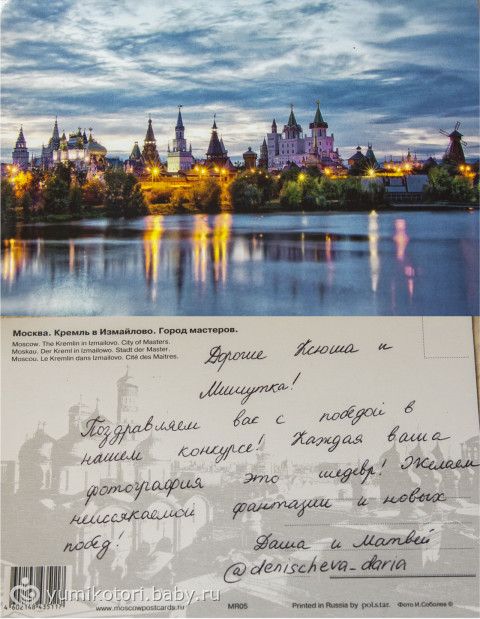 Москва. Кремль в Измайлово. Город мастеров.
Moscow. The Kremlin in Izmailovo. City of Masters.
Moskau. Der Kreml in Izmailowo. Stadt der Master.
Moscou. Le Kremlin dans Izmailovo. Cité des Maitres.
Дорогие Ксюша и
Мишутка!
Поздравляем вас с победой в
нашем конкурсе! Каждая ваша
фотография это шедевр! Желаем
неиссякаемой фантазии и новых
побед!
Даша и Матвей
@denischeva_daria
4 602148 435117
www.moscowpostcards.ru
MR05
Printed in Russia by polstar.
Фото И.Соболев ©
© yumikotori.baby.ru